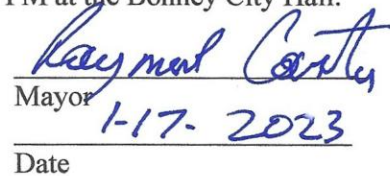 PM at the Bonney City Hall.
Raymond Cantu
Mayor
1-17-2023
Date